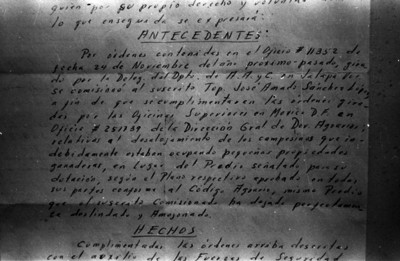 quien por su propio derecho y
lo que enseguida se expresará:
ANTECEDENTES:
Por órdenes contenidas en el Oficio # 11352 de
fecha 24 de Noviembre, del año próximo-pasado, gira-
do por la Deleg. del Dpto. de A.A. y C. en Jalapa Ver.
se comisionó al suscrito Top. José Amado Sánchez
a fin de que se cumplimentaran las órdenes gira-
das por las Oficinas Superiores en México D.F. en
Oficio # 251739 de la Dirección Gral de Der. Agrarios,
relativas al desalojamiento de los campesinos que in-
debidamente estaban ocupando pequeñas propiedades
ganaderas, en lugar del Predio señalado para su
dotación, según el Plano respectivo aprobado, en todas
sus partes conforme al Código Agrario, mismo Predio
que el suscrito Comisionado ha dejado perfectamen-
te deslindado y Amojonado.
HECHOS
Cumplimentadas las órdenes arriba descritas
con el auxilio de las Fuerzas de Seguridad